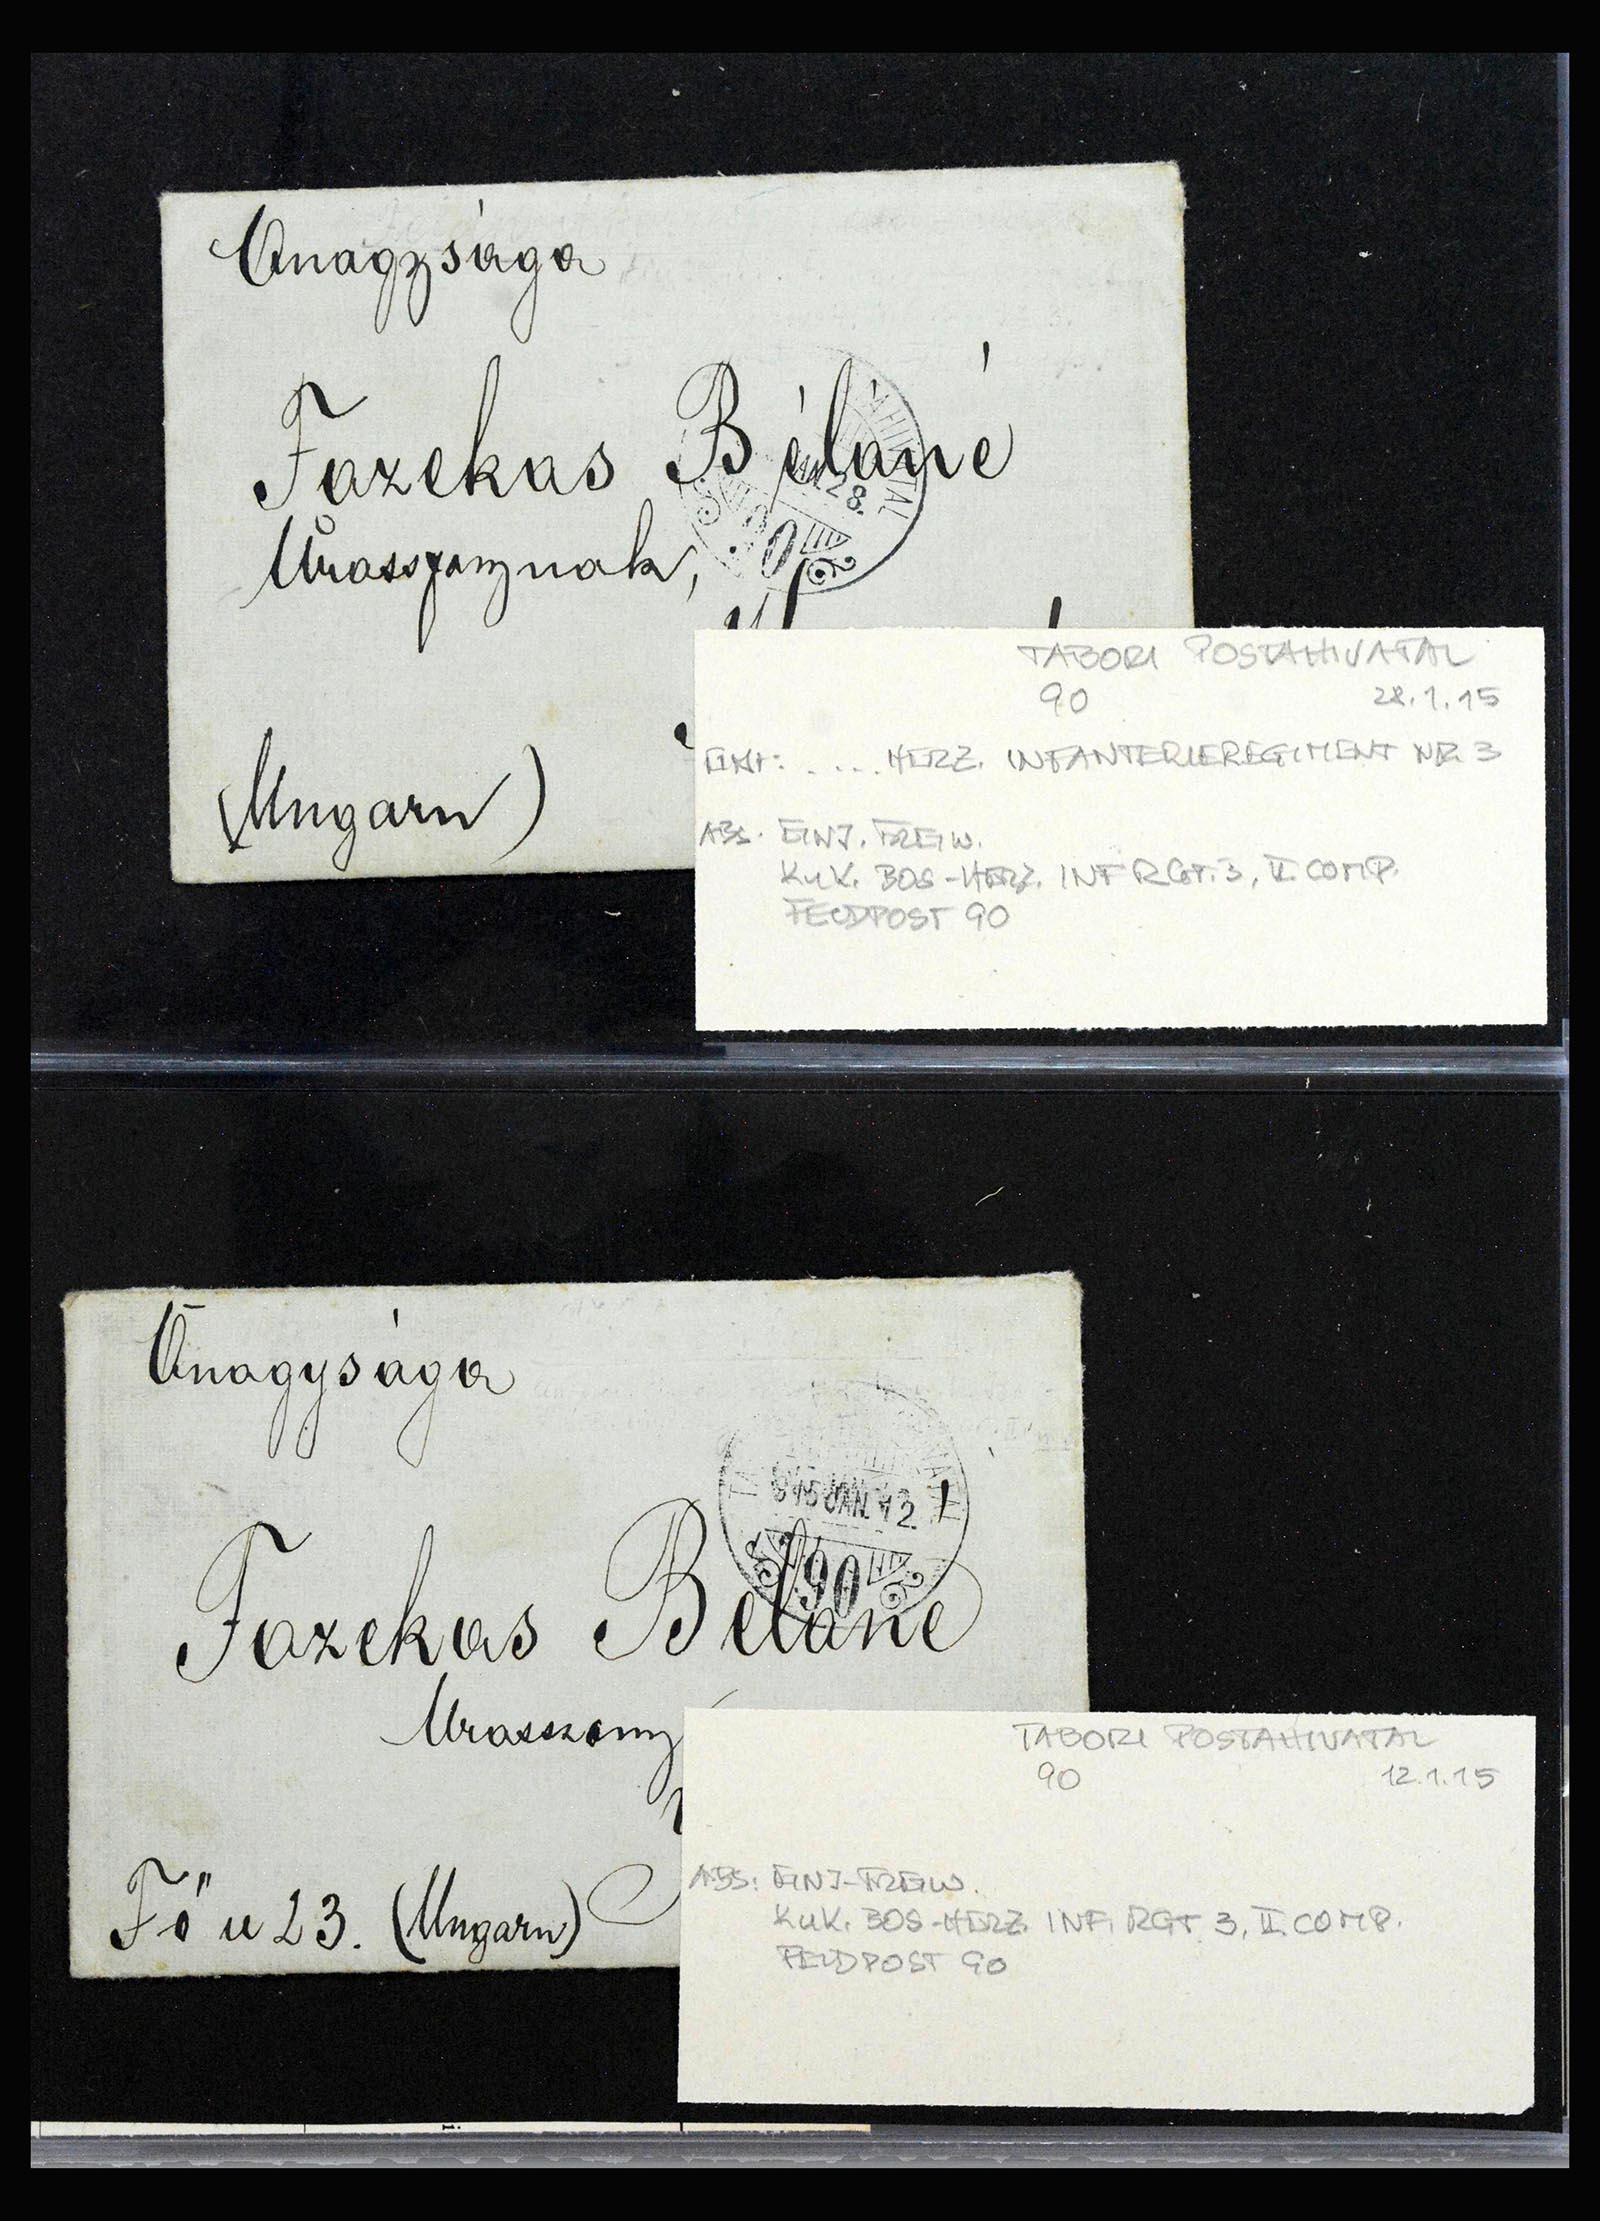 Őnagysága
Fazekas Béláné
Úrasszonynak,
(Ungarn)
AHIVATAL
28.
90
TABORI POSTAHIVATAL
90 28.1.15
EINH: .... HERZ. INFANTERIEREGIMENT NR. 3
ABS. EINJ. FREIW.
KuK. BOS-HERZ. INF RGT. 3, II. COMP.
FELDPOST 90
Őnagysága
915 JAN. 12.
90
Fazekas Béláné
Urasszony
Fő u 23. (Ungarn)
TABORI POSTAHIVATAL
90 12.1.15
ABS: EINJ-FREIW.
KuK. BOS-HERZ. INF. RGT. 3, II. COMP.
FELDPOST 90